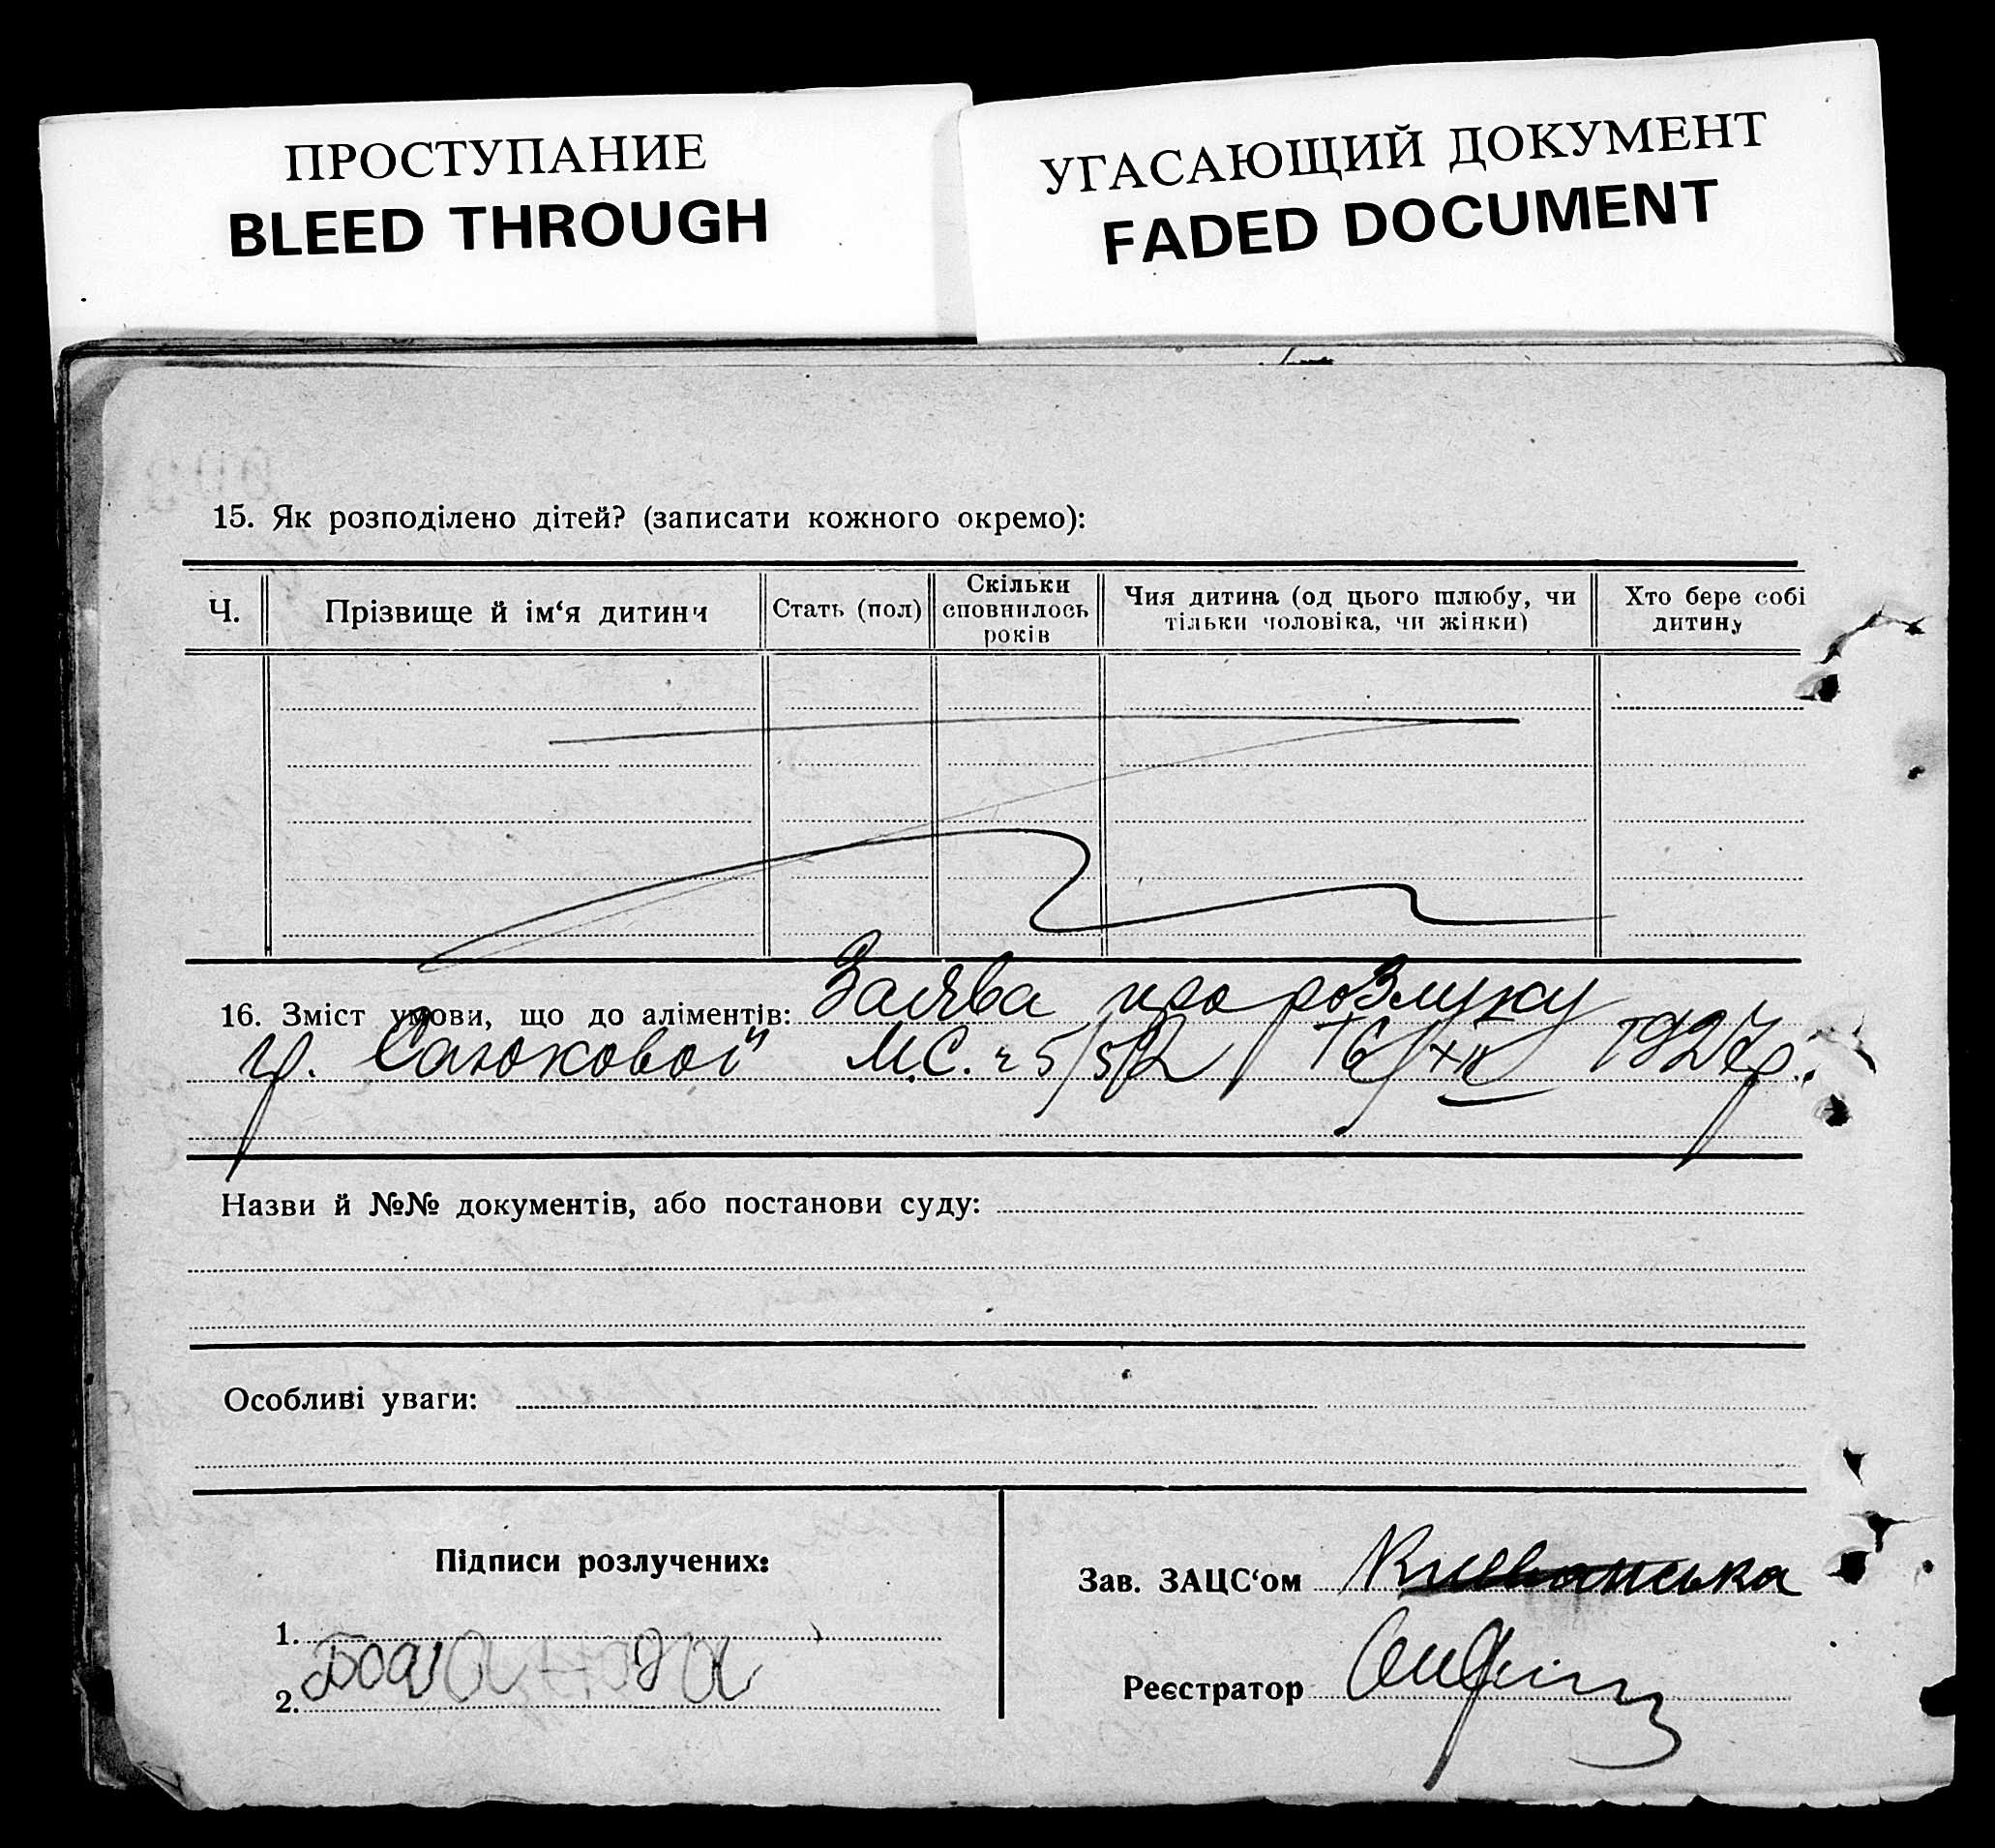 ПРОСТУПАНИЕ
BLEED THROUGH
УГАСАЮЩИЙ ДОКУМЕНТ
FADED DOCUMENT
15. Як розподілено дітей? (записати кожного окремо):
Ч.
Прізвище й ім‘я дитини
Стать (пол)
Скільки
сповнилось
років
Чия дитина (од цього шлюбу, чи
тільки чоловіка, чи жінки)
Хто бере собі
дитину
16. Зміст умови, що до аліментів: Заява про розлуку
гр. М.С. 16/XII 1927р.
Назви й №№ документів, або постанови суду:
Особливі уваги:
Підписи розлучених:
1.
2.
Зав. ЗАЦС‘ом
Реєстратор